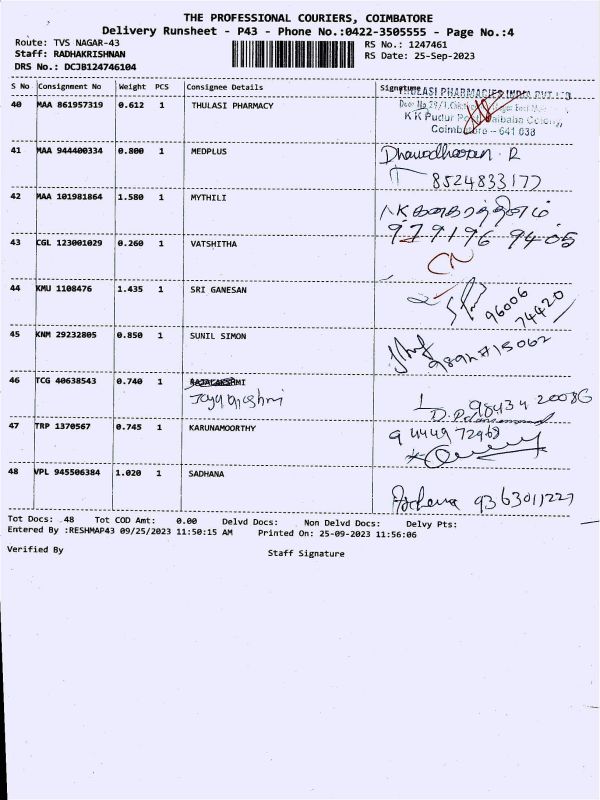 THE PROFESSIONAL COURIERS, COIMBATORE
Delivery Runsheet - P43 - Phone No.:0422-3505555 - Page No.:4
Route: TVS NAGAR-43 RS No.: 1247461
Staff: RADHAKRISHNAN RS Date: 25-Sep-2023
DRS No.: DCJB124746104
S No Consignment No Weight PCS Consignee Details Signature
THULASI PHARMACIES INDIA PVT LTD
40 MAA 861957319 0.612 1 THULASI PHARMACY
K K Pudur Post, Saibaba Colony,
Coimbatore – 641 038
41 MAA 944400334 0.800 1 MEDPLUS
8524833177
42 MAA 101981864 1.580 1 MYTHILI
979196 9405
43 CGL 123001029 0.260 1 VATSHITHA
CN
44 KMU 1108476 1.435 1 SRI GANESAN
96006
74420
45 KNM 29232805 0.850 1 SUNIL SIMON
46 TCG 40638543 0.740 1 RAJALAKSHMI
47 TRP 1370567 0.745 1 KARUNAMOORTHY
9444972968
48 VPL 945506384 1.020 1 SADHANA
9363011227
Tot Docs: 48 Tot COD Amt: 0.00 Delvd Docs: Non Delvd Docs: Delvy Pts:
Entered By :RESHMAP43 09/25/2023 11:50:15 AM Printed On: 25-09-2023 11:56:06
Verified By Staff Signature